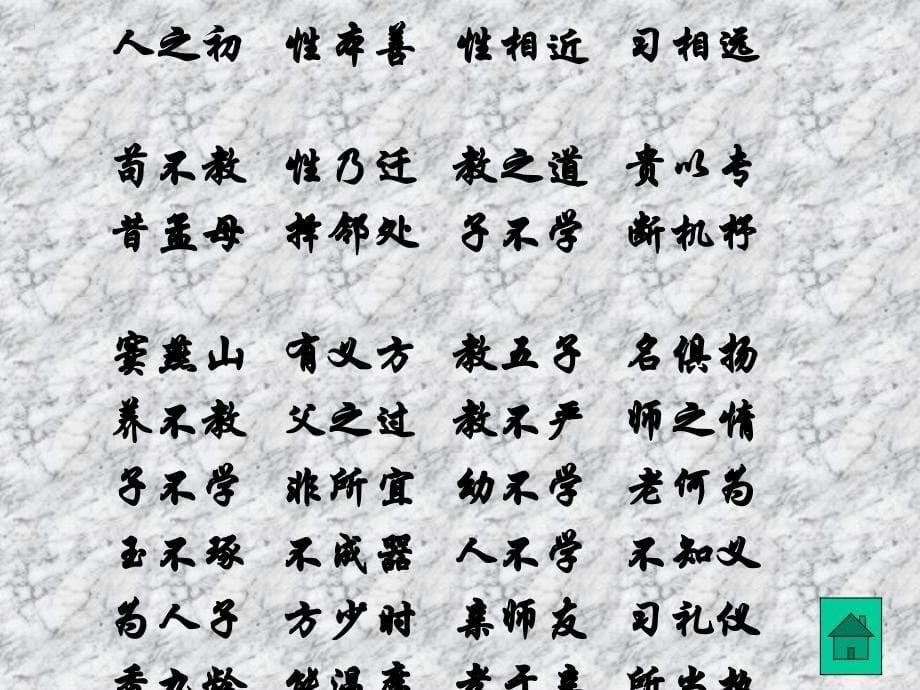 人之初 性本善 性相近 习相远
苟不教 性乃迁 教之道 贵以专
昔孟母 择邻处 子不学 断机杼
窦燕山 有义方 教五子 名俱扬
养不教 父之过 教不严 师之惰
子不学 非所宜 幼不学 老何为
玉不琢 不成器 人不学 不知义
为人子 方少时 亲师友 习礼仪
香九龄 能温席 孝于亲 所当执